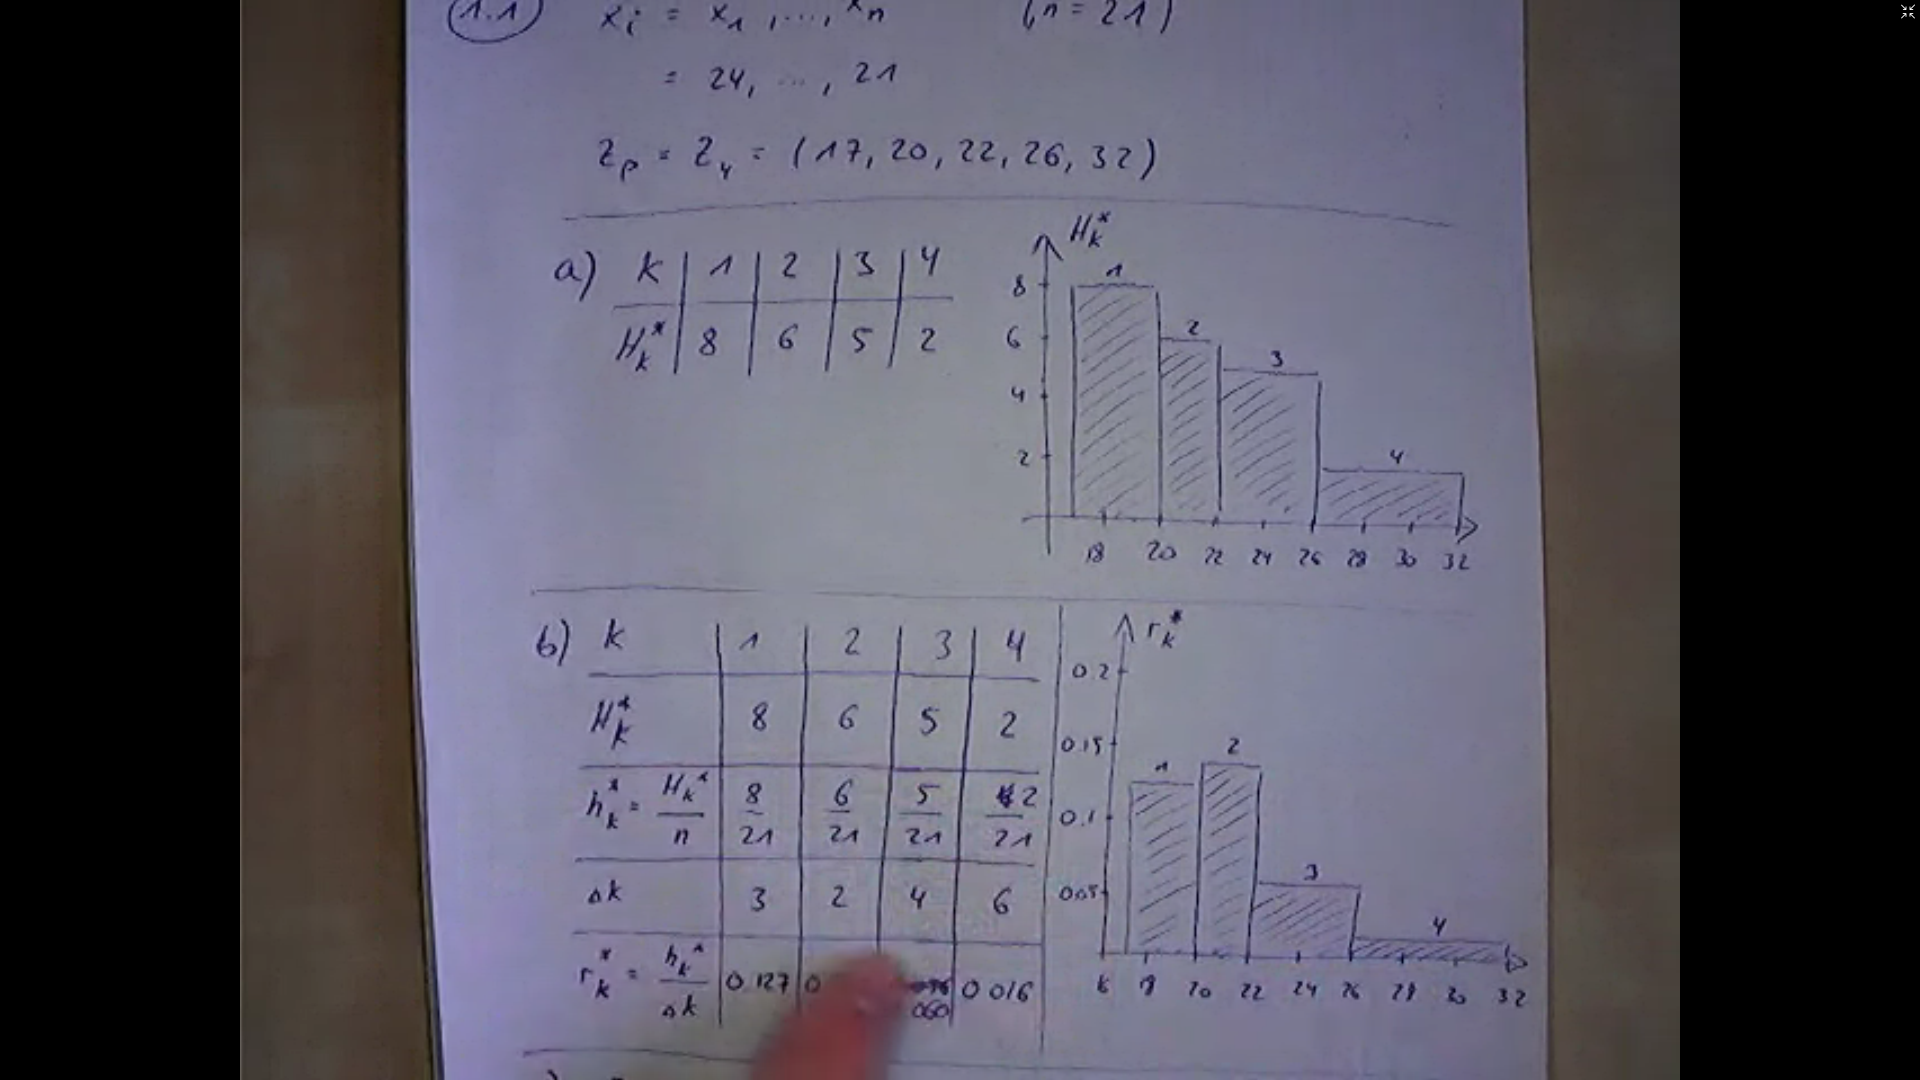 1.1 xi = x1, ..., xn (n = 21)
= 24, ..., 21
Zp = Z4 = (17, 20, 22, 26, 32)
a) k 1 2 3 4
Hk* 8 6 5 2
Hk*
8
6
4
2
1
2
3
4
18 20 22 24 26 28 30 32
b) k 1 2 3 4
Hk* 8 6 5 2
hk* = Hk*/n 8/21 6/21 5/21 2/21
Δk 3 2 4 6
rk* = hk*/Δk 0.127 0 060 0 016
rk*
0.2
0.15
0.1
0.05
1
2
3
4
18 20 22 24 26 28 30 32